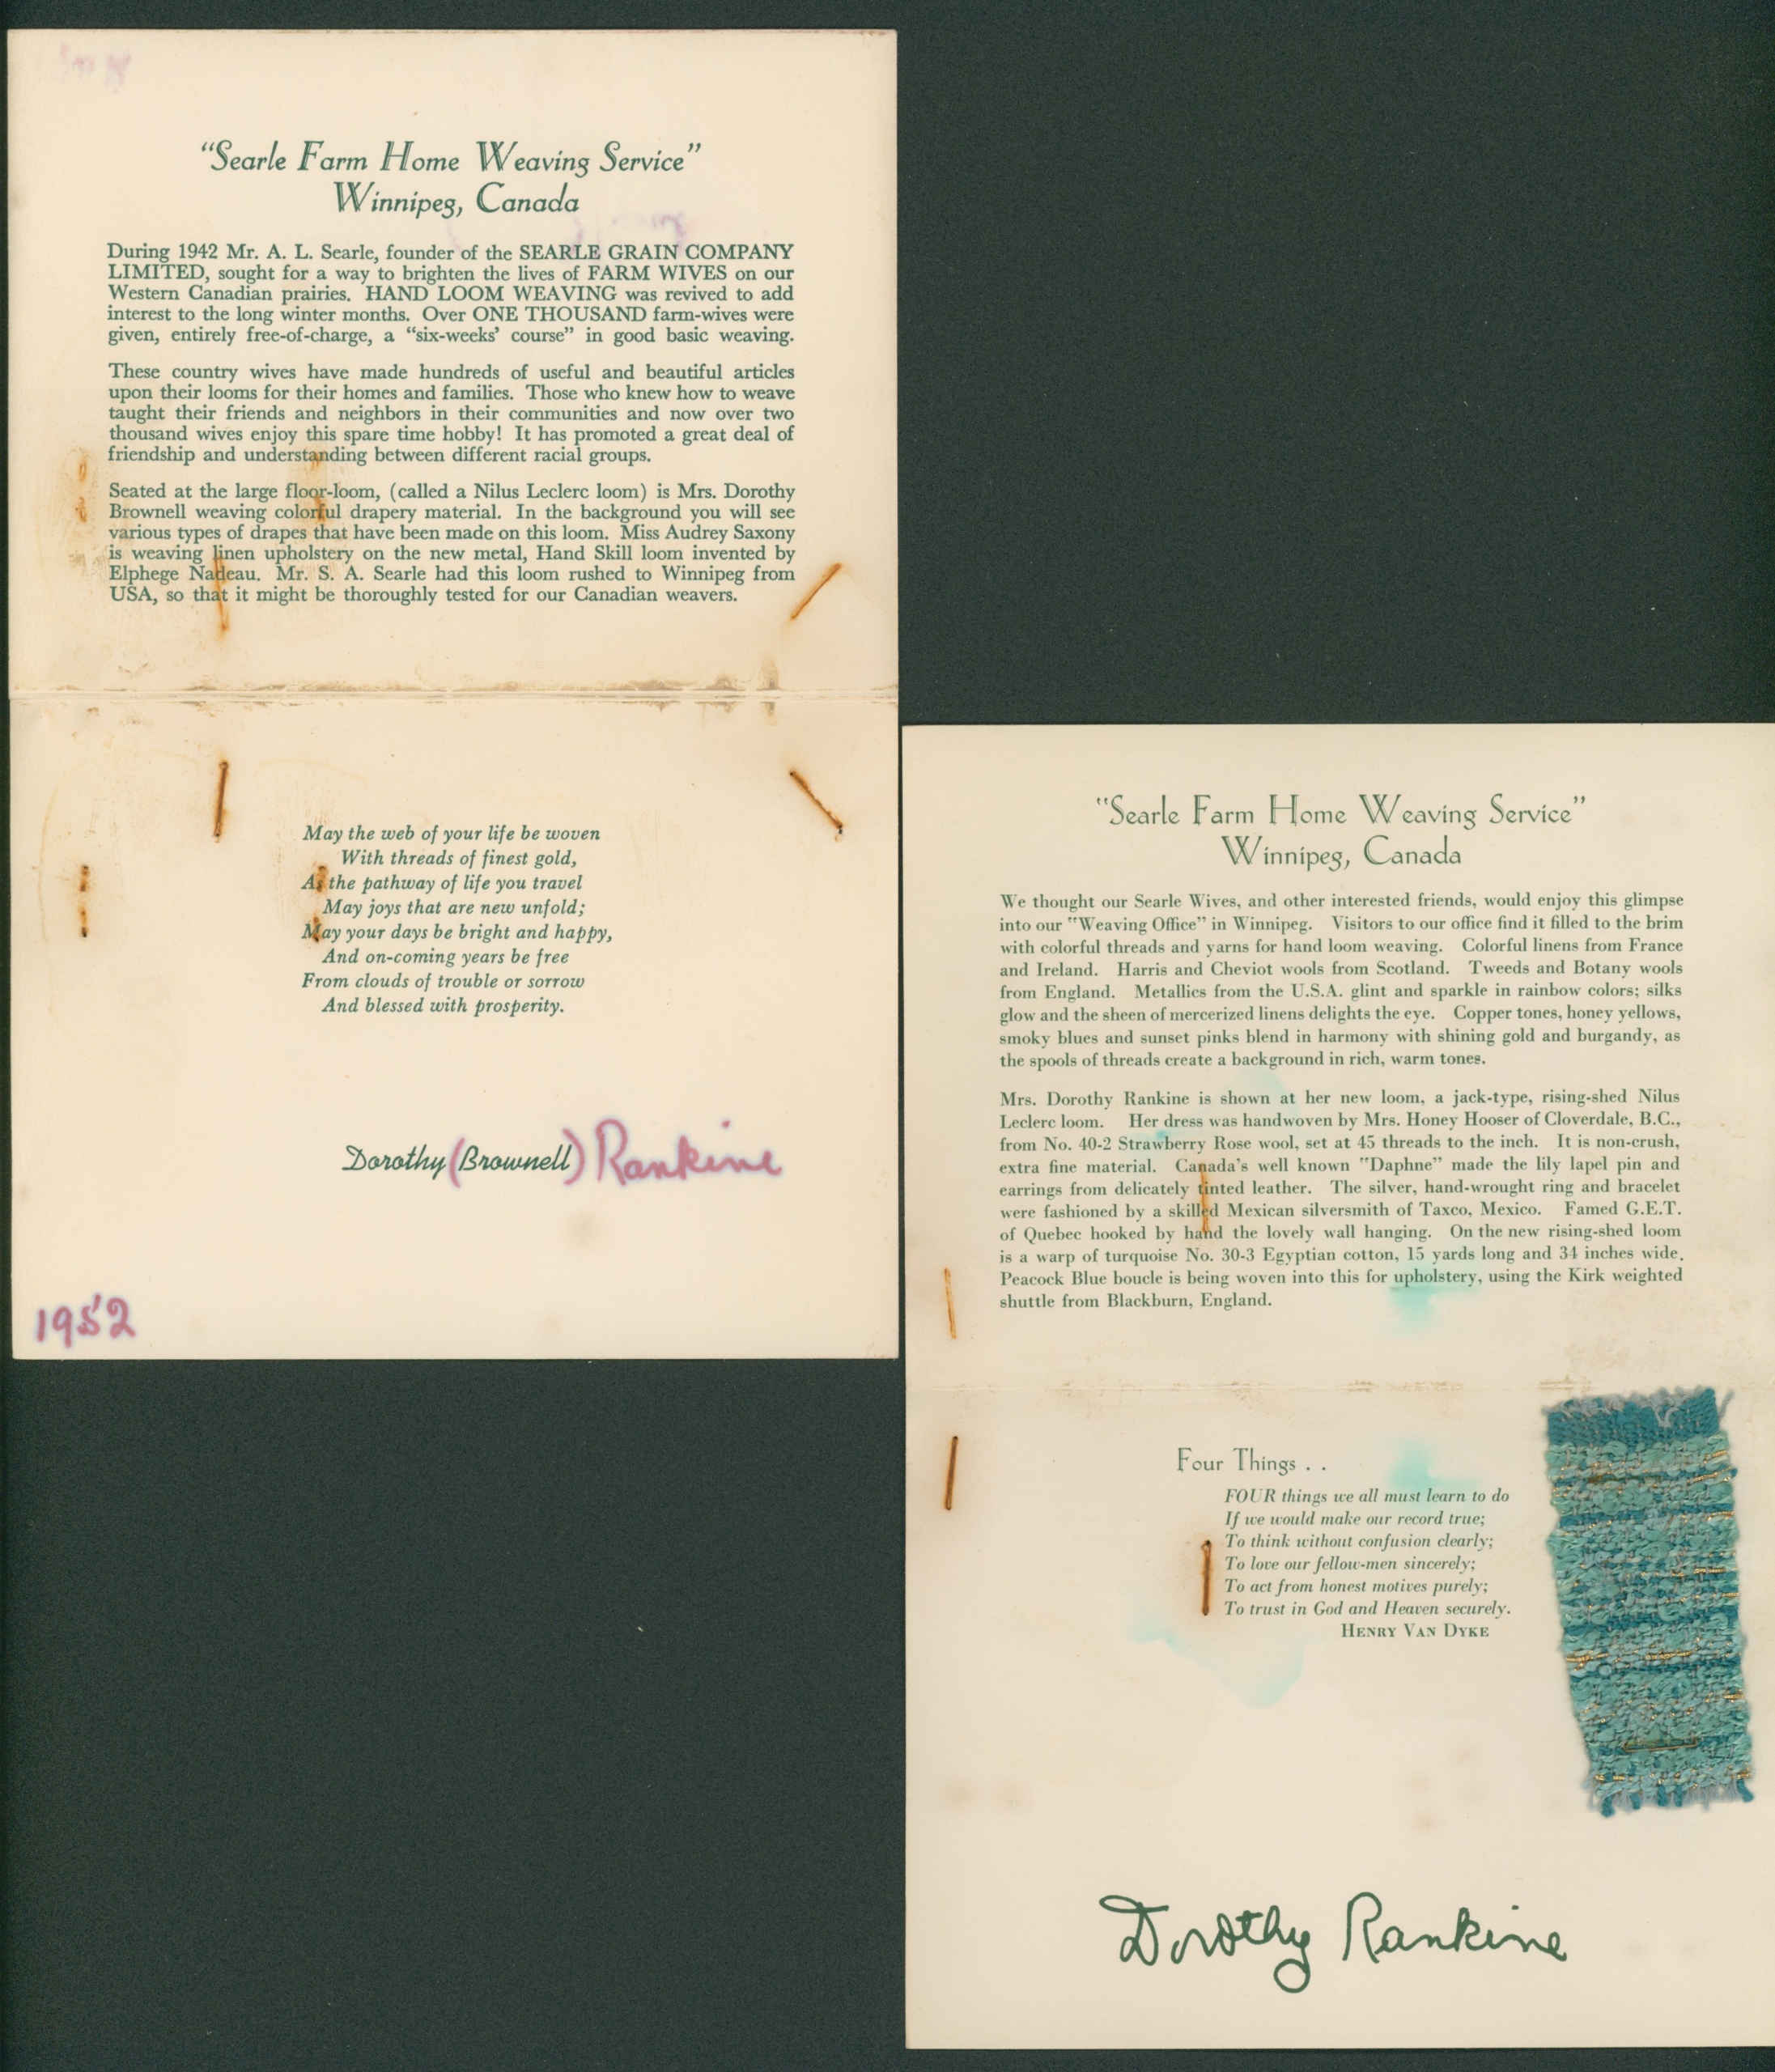 "Searle Farm Home Weaving Service"
Winnipeg, Canada
During 1942 Mr. A. L. Searle, founder of the SEARLE GRAIN COMPANY
LIMITED, sought for a way to brighten the lives of FARM WIVES on our
Western Canadian prairies. HAND LOOM WEAVING was revived to add
interest to the long winter months. Over ONE THOUSAND farm-wives were
given, entirely free-of-charge, a "six-weeks' course" in good basic weaving.
These country wives have made hundreds of useful and beautiful articles
upon their looms for their homes and families. Those who knew how to weave
taught their friends and neighbors in their communities and now over two
thousand wives enjoy this spare time hobby! It has promoted a great deal of
friendship and understanding between different racial groups.
Seated at the large floor-loom, (called a Nilus Leclerc loom) is Mrs. Dorothy
Brownell weaving colorful drapery material. In the background you will see
various types of drapes that have been made on this loom. Miss Audrey Saxony
is weaving linen upholstery on the new metal, Hand Skill loom invented by
Elphege Nadeau. Mr. S. A. Searle had this loom rushed to Winnipeg from
USA, so that it might be thoroughly tested for our Canadian weavers.
May the web of your life be woven
With threads of finest gold,
As the pathway of life you travel
May joys that are new unfold;
May your days be bright and happy,
And on-coming years be free
From clouds of trouble or sorrow
And blessed with prosperity.
Dorothy (Brownell) Rankine
1952
"Searle Farm Home Weaving Service"
Winnipeg, Canada
We thought our Searle Wives, and other interested friends, would enjoy this glimpse
into our "Weaving Office" in Winnipeg. Visitors to our office find it filled to the brim
with colorful threads and yarns for hand loom weaving. Colorful linens from France
and Ireland. Harris and Cheviot wools from Scotland. Tweeds and Botany wools
from England. Metallics from the U.S.A. glint and sparkle in rainbow colors; silks
glow and the sheen of mercerized linens delights the eye. Copper tones, honey yellows,
smoky blues and sunset pinks blend in harmony with shining gold and burgandy, as
the spools of threads create a background in rich, warm tones.
Mrs. Dorothy Rankine is shown at her new loom, a jack-type, rising-shed Nilus
Leclerc loom. Her dress was handwoven by Mrs. Honey Hooser of Cloverdale, B.C.,
from No. 40-2 Strawberry Rose wool, set at 45 threads to the inch. It is non-crush,
extra fine material. Canada's well known "Daphne" made the lily lapel pin and
earrings from delicately tinted leather. The silver, hand-wrought ring and bracelet
were fashioned by a skilled Mexican silversmith of Taxco, Mexico. Famed G.E.T.
of Quebec hooked by hand the lovely wall hanging. On the new rising-shed loom
is a warp of turquoise No. 30-3 Egyptian cotton, 15 yards long and 34 inches wide.
Peacock Blue boucle is being woven into this for upholstery, using the Kirk weighted
shuttle from Blackburn, England.
Four Things . .
FOUR things we all must learn to do
If we would make our record true;
To think without confusion clearly;
To love our fellow-men sincerely;
To act from honest motives purely;
To trust in God and Heaven securely.
HENRY VAN DYKE
Dorothy Rankine